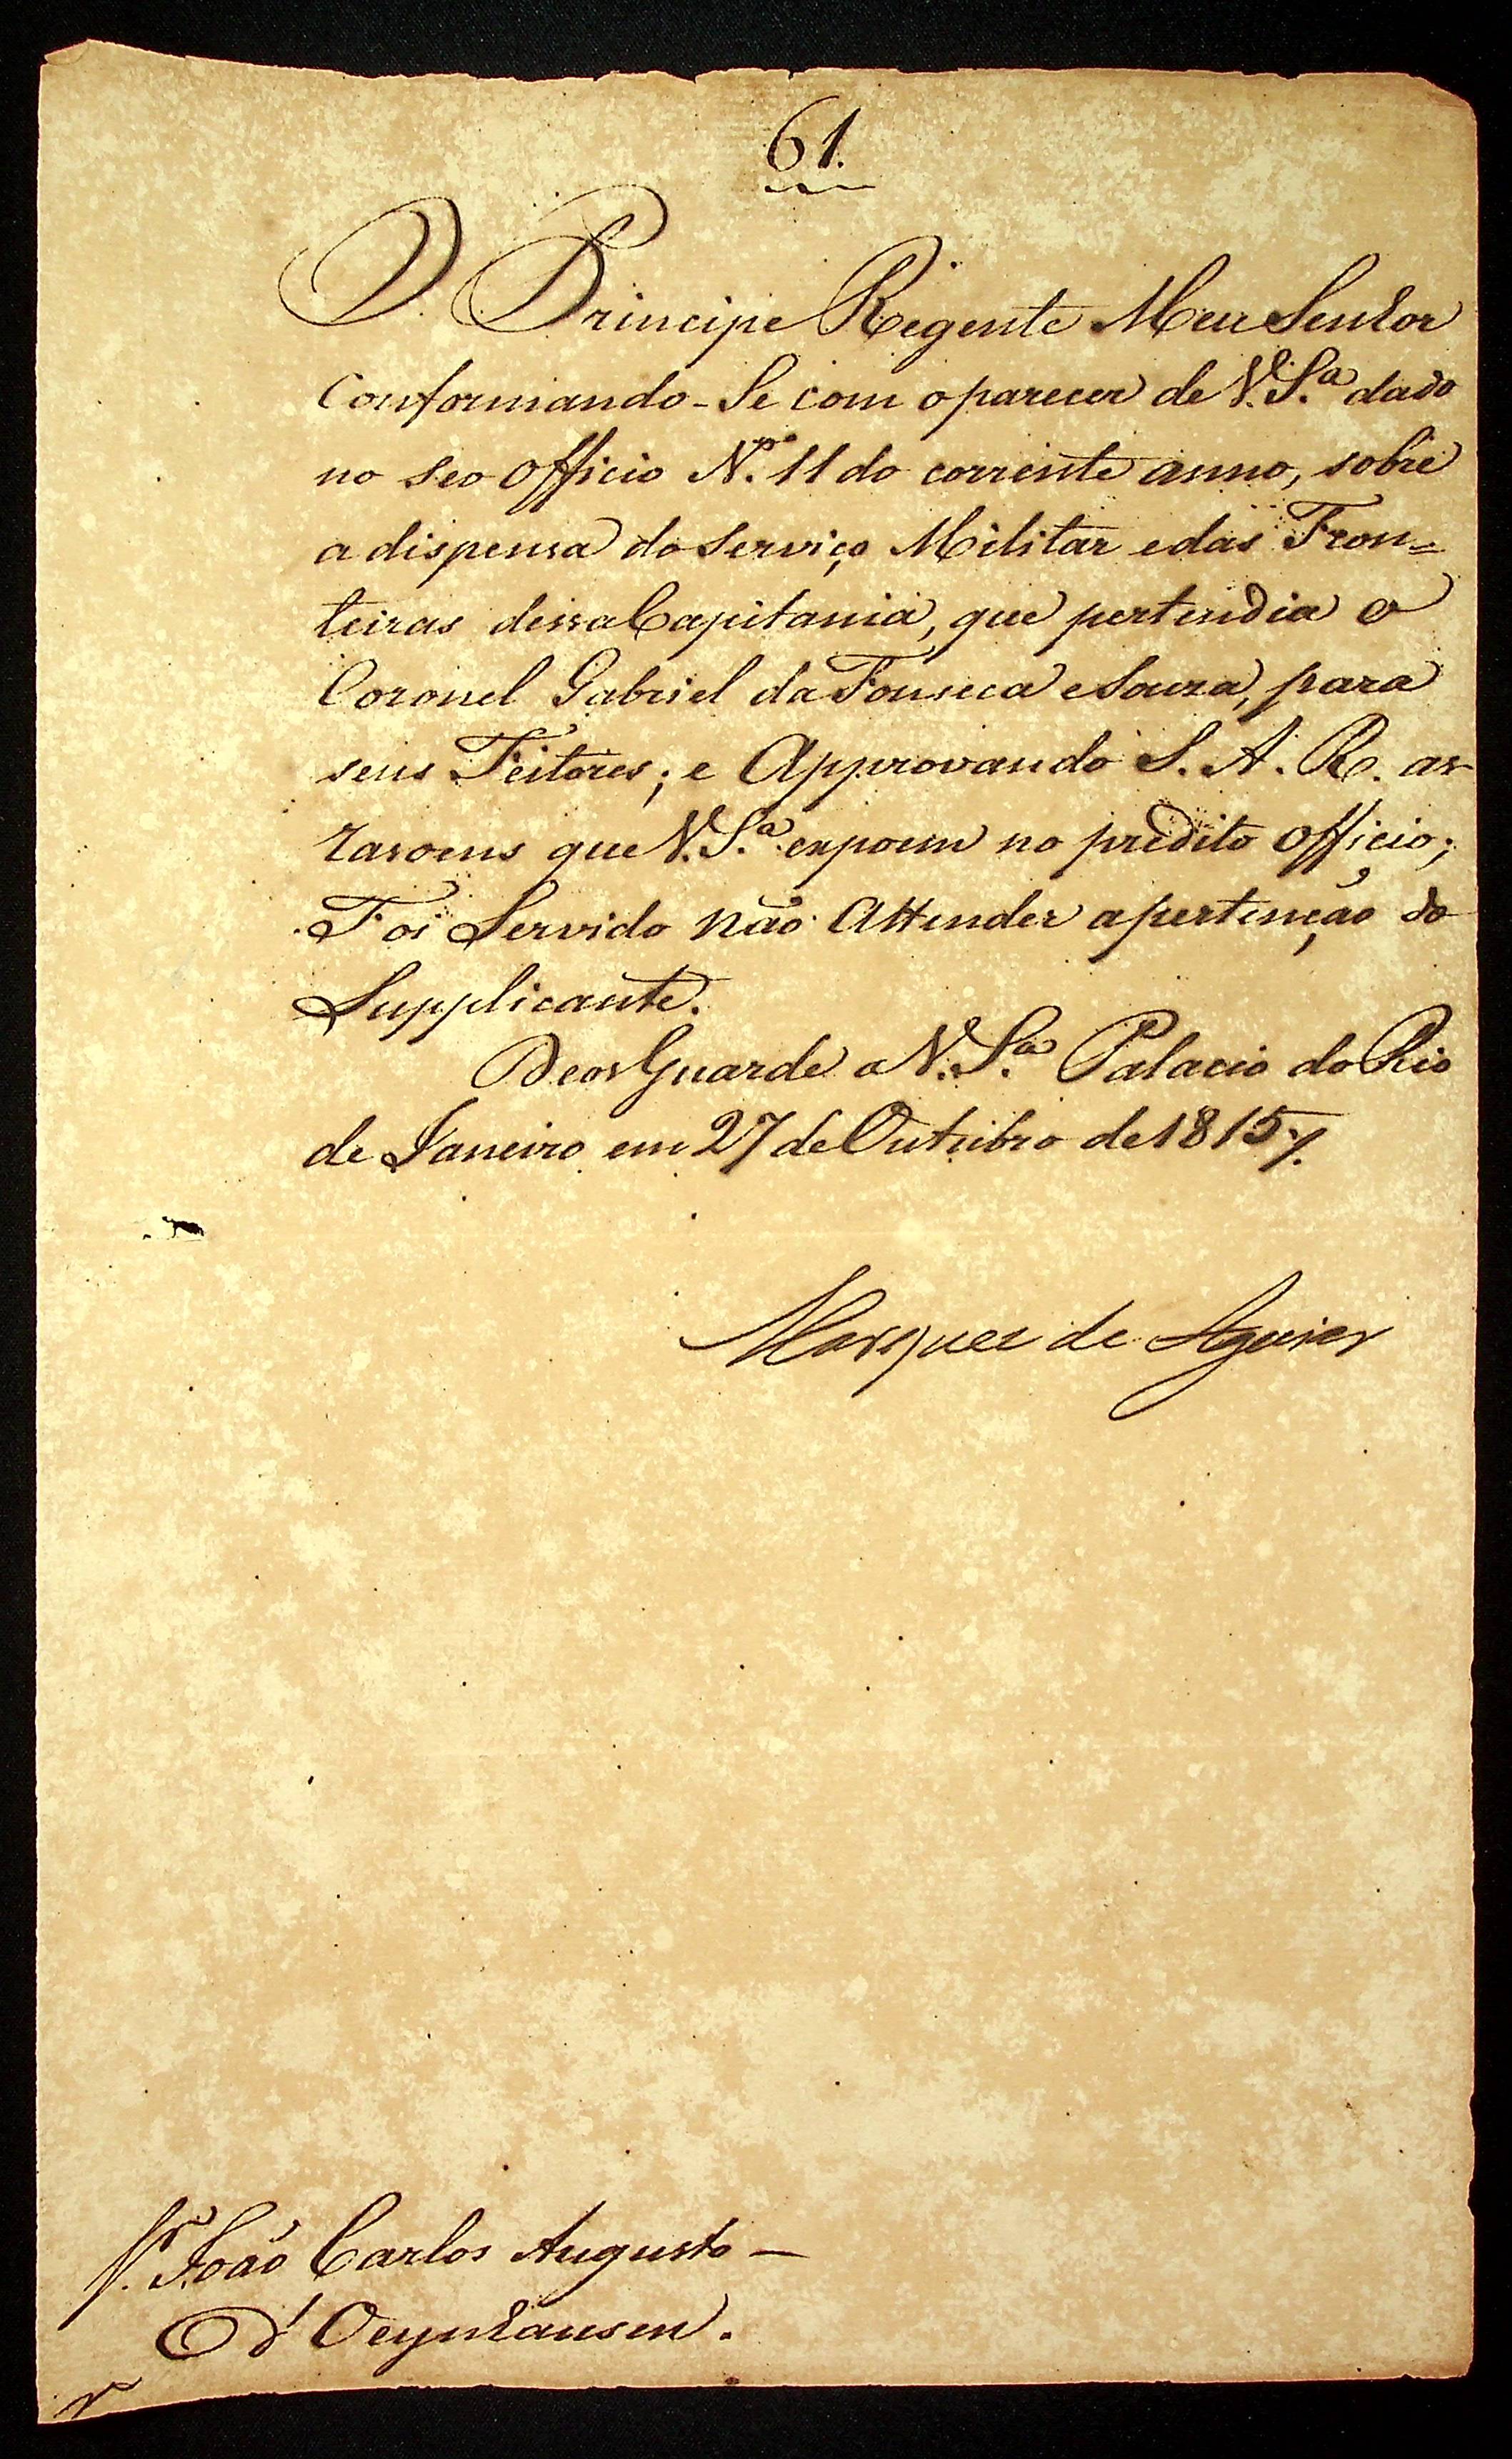 61.
O Principe Regente Meu Senhor
Conformando-Se com o parecer de V. S.ª dado
no seo Officio N.º 11 do corrente anno, sobre
a dispensa do Serviço Militar e das Fron=
teiras dessa Capitania, que pertendia o
Coronel Gabriel da Fonseca e Souza, para
seus Feitores; e Approvando S. A. R. as
razoens que V. S.ª expoem no predito Officio;
Foi Servido não Attender a pertenção do
Supplicante.
Deos Guarde a V. S.ª Palacio do Rio
de Janeiro em 27 de Outubro de 1815 ⁒
Marquez de Aguiar
S.r João Carlos Augusto –
d'Oeynhausen.